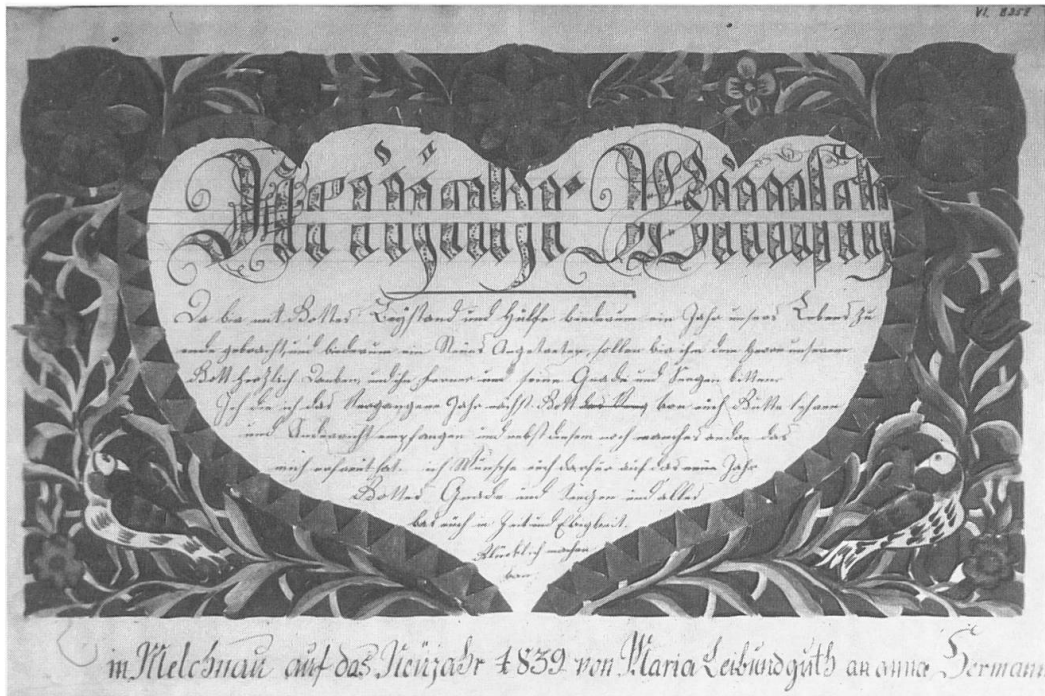 VI 8258
Neüjahr Wünsch
Da bir mit Gottes Beÿstand und Hülfe biederum ein Jahr unsers Lebens zu
ende gebracht, und biederum ein Neües Angetreten, sollen bir ihm dem Herren unserem
Gott Herzlich Danken, und ihn ferner um seine Gnade und Seegen bitten
Ich die ich das Vergangene Jahr nächst Gott von eüch Gutte lehren
und Underricht empfangen und nebst diesem noch manches andere das
mich erfreüt hat. ich Wünsche eüch darfür auf das neüe Jahr
Gottes Gnade und Seegen und alles
bas eüch in Zeit und Ebigkeit.
Glücklich machen
kan.
in Melchnau auf das Neüjahr 1839 von Maria Leibundguth an anna Hermann